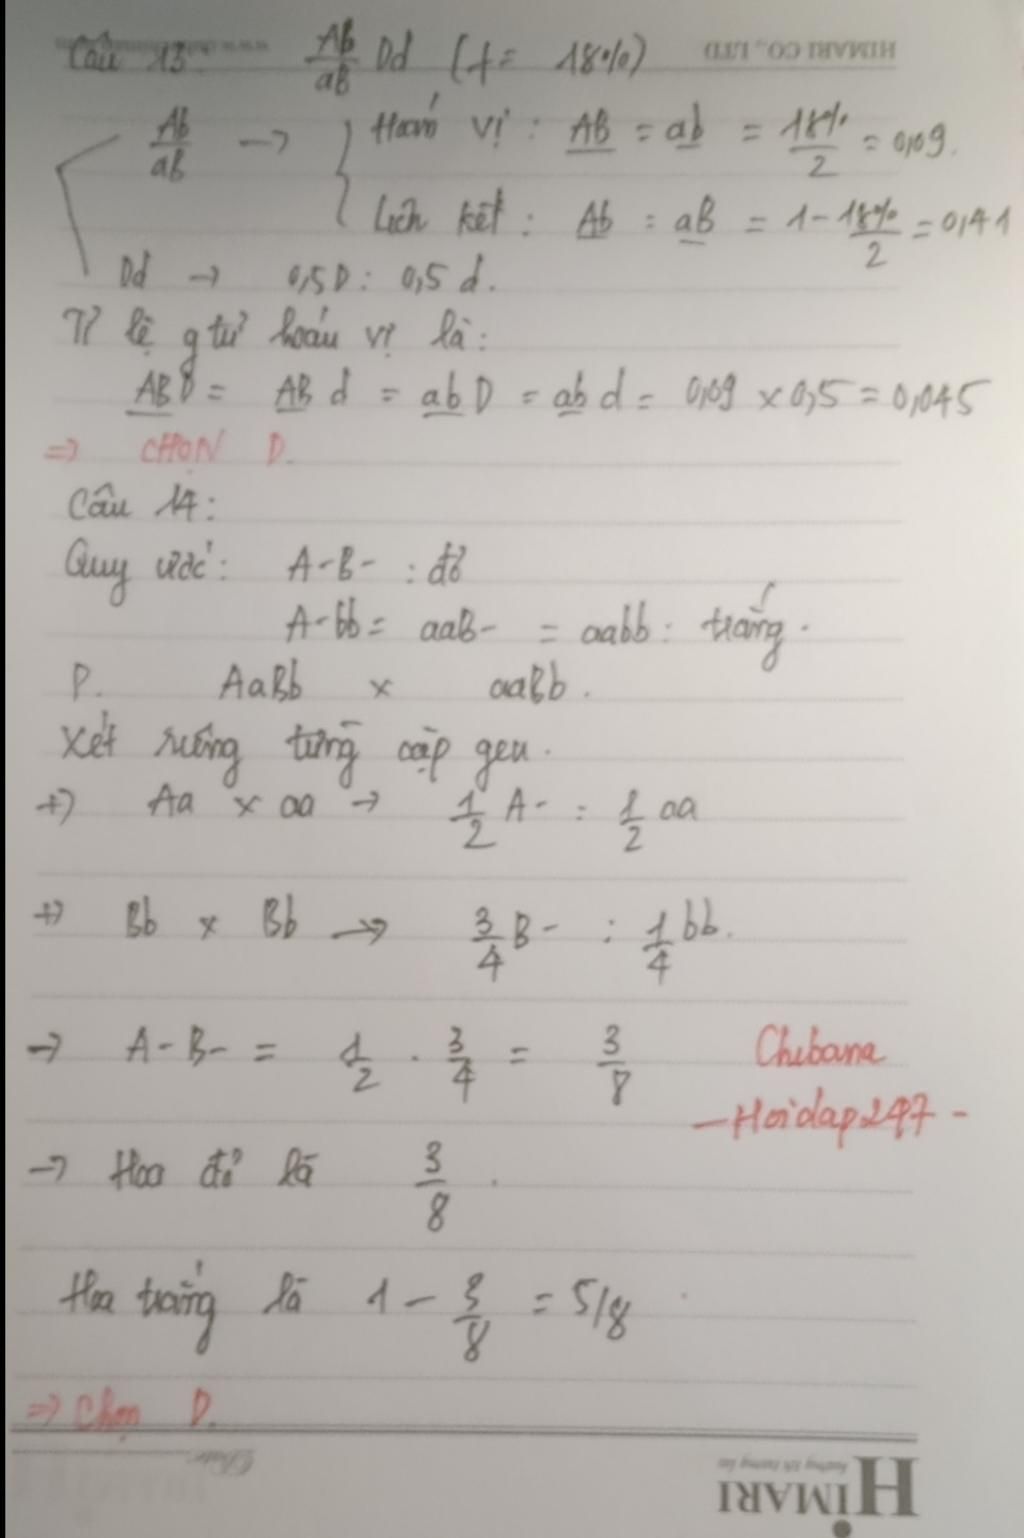 HIMARI CO., LTD
Câu 13: Ab/aB Dd (f = 18%)
Ab/aB → Hoán vị: AB = ab = 18%/2 = 0,09.
Liên kết: Ab = aB = 1 - 18%/2 = 0,41
Dd → 0,5D : 0,5 d.
Tỉ lệ gtử hoán vị là:
ABD = AB d = ab D = ab d = 0,09 x 0,5 = 0,045
=> CHỌN D.
Câu 14:
Quy ước: A-B- : đỏ
A-bb = aaB- = aabb: trắng.
P. AaBb x aaBb.
Xét riêng từng cặp gen.
+) Aa x aa → 1/2 A- : 1/2 aa
+) Bb x Bb → 3/4 B- : 1/4 bb.
→ A-B- = 1/2 . 3/4 = 3/8
Chibana
- Hoidap247 -
→ Hoa đỏ là 3/8.
Hoa trắng là 1 - 3/8 = 5/8
=> Chọn D.
HIMARI